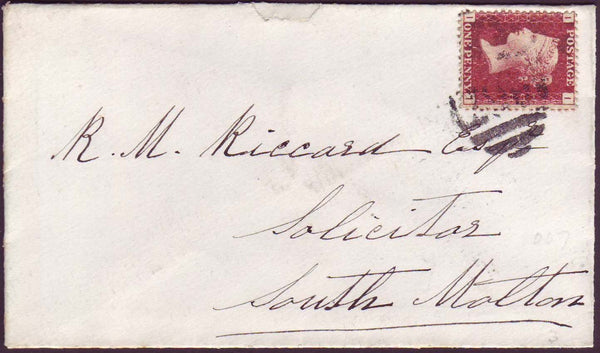 ONE PENNY
POSTAGE
R. M. Riccard Esqr
Solicitor
South Molton
007